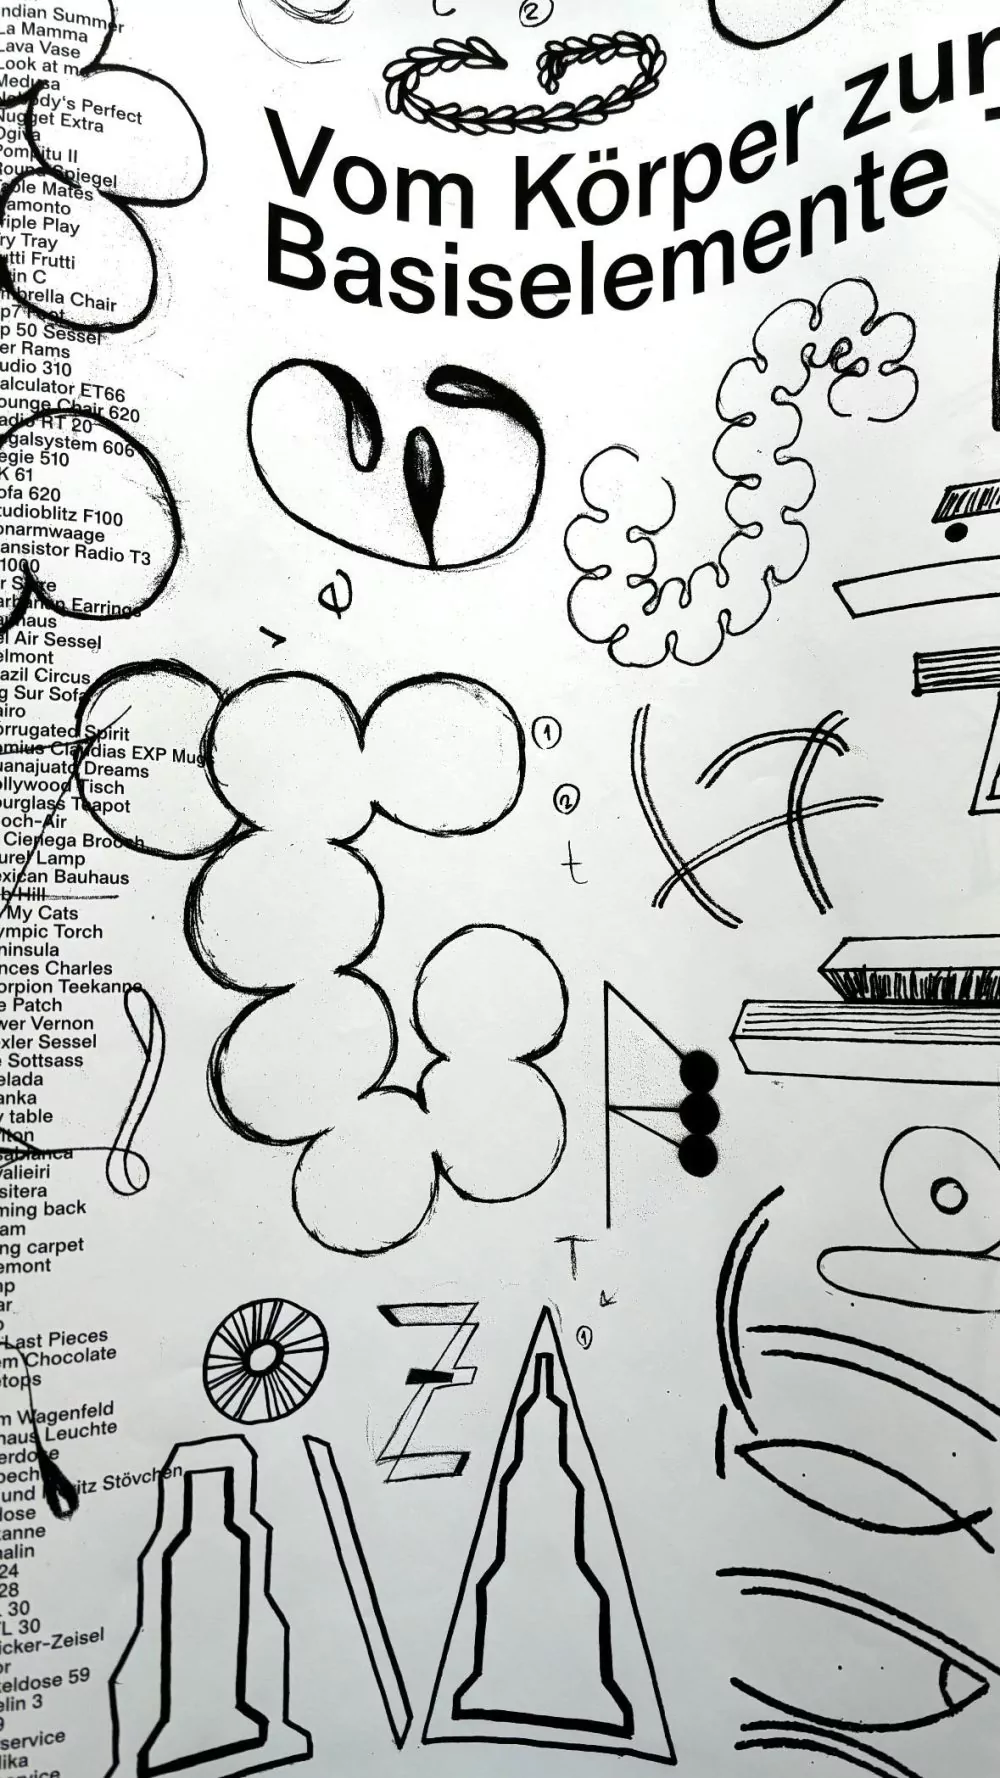 Vom Körper zur
Basiselemente
ndian Summer
La Mamma
Lava Vase
Look at me
Medusa
Nobody's Perfect
Nugget Extra
Ogiva
Pompitu II
Round Spiegel
able Mates
amonto
riple Play
ry Tray
utti Frutti
in C
mbrella Chair
p 50 Sessel
er Rams
udio 310
alculator ET66
ounge Chair 620
adio RT 20
egalsystem 606
egie 510
K 61
ofa 620
tudioblitz F100
onarmwaage
ansistor Radio T3
1000
arbarian Earrings
auhaus
el Air Sessel
elmont
azil Circus
g Sur Sofa
airo
orrugated Spirit
omius Claudias EXP Mugs
uanajuato Dreams
ollywood Tisch
ourglass Teapot
och-Air
Cienega Brooch
urel Lamp
exican Bauhaus
b Hill
My Cats
ympic Torch
ninsula
nces Charles
orpion Teekanne
e Patch
wer Vernon
exler Sessel
e Sottsass
elada
anka
y table
lton
sablanca
valieiri
sitera
ming back
am
ng carpet
emont
mp
ar
o
Last Pieces
em Chocolate
etops
m Wagenfeld
haus Leuchte
erdose
und Moritz Stövchen
dose
kanne
nalin
24
28
L 30
TL 30
icker-Zeisel
or
keldose 59
elin 3
9
service
lika
2
1
2
t
T
1